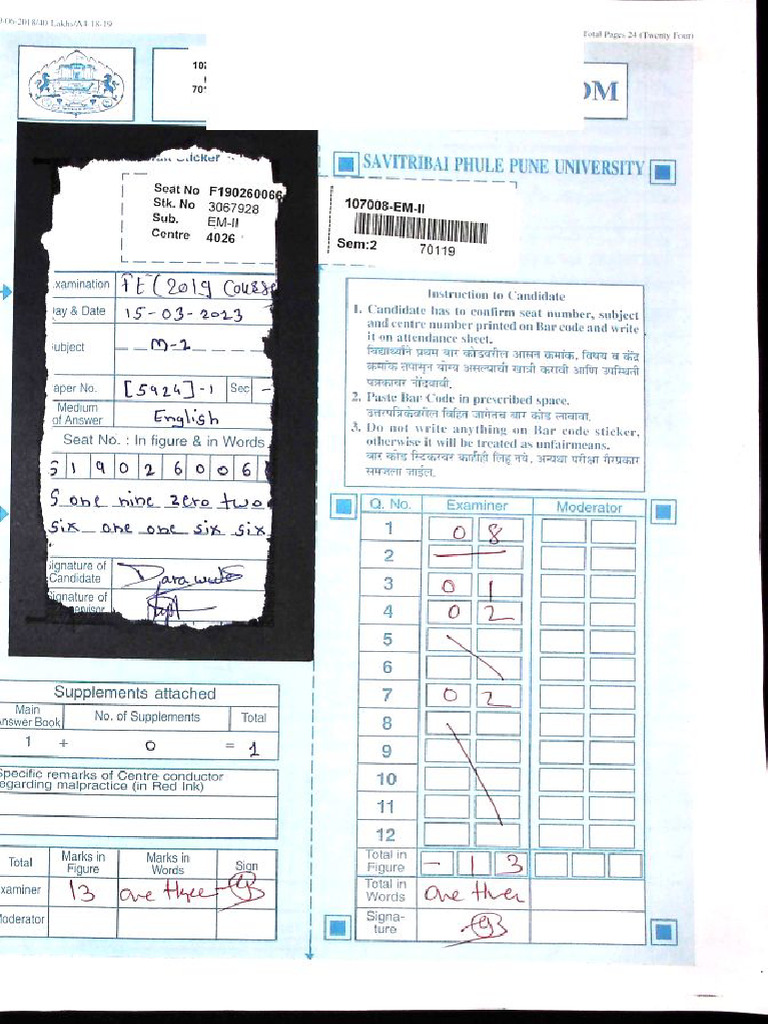 Total Pages 24 (Twenty Four)
OM
SAVITRIBAI PHULE PUNE UNIVERSITY
Sticker
Seat No F190260066
Stk. No 3067928
Sub. EM-II
Centre 4026
107008-EM-II
Sem:2 70119
xamination FE (2019 Course
ay & Date 15-03-2023
ubject M-2
aper No. [5924]-1 Sec -
Medium of Answer English
Seat No. : In figure & in Words
S 1 9 0 2 6 0 0 6
S one nine zero two
six one one six six
ignature of Candidate
ignature of
Instruction to Candidate
1. Candidate has to confirm seat number, subject
and centre number printed on Bar code and write
it on attendance sheet.
विद्यार्थ्याने प्रथम बार कोडवरील आसन क्रमांक, विषय व केंद्र
क्रमांक तपासून योग्य असल्याची खात्री करावी आणि उपस्थिती
पत्रकावर नोंदवावी.
2. Paste Bar Code in prescribed space.
उत्तरपत्रिकेवरील विहित जागेतच बार कोड लावावा.
3. Do not write anything on Bar code sticker,
otherwise it will be treated as unfairmeans.
बार कोड स्टिकरवर काहीही लिहू नये, अन्यथा परीक्षा गैरप्रकार
समजला जाईल.
Q. No. Examiner Moderator
1 0 8
2 —
3 0 1
4 0 2
5
6
7 0 2
8
9
10
11
12
Total in Figure - 1 3
Total in Words one three
Signa-
ture
Supplements attached
Main Answer Book No. of Supplements Total
1 + 0 = 1
Specific remarks of Centre conductor
egarding malpractice (in Red Ink)
Total Marks in Figure Marks in Words Sign
xaminer 13 one three
Moderator